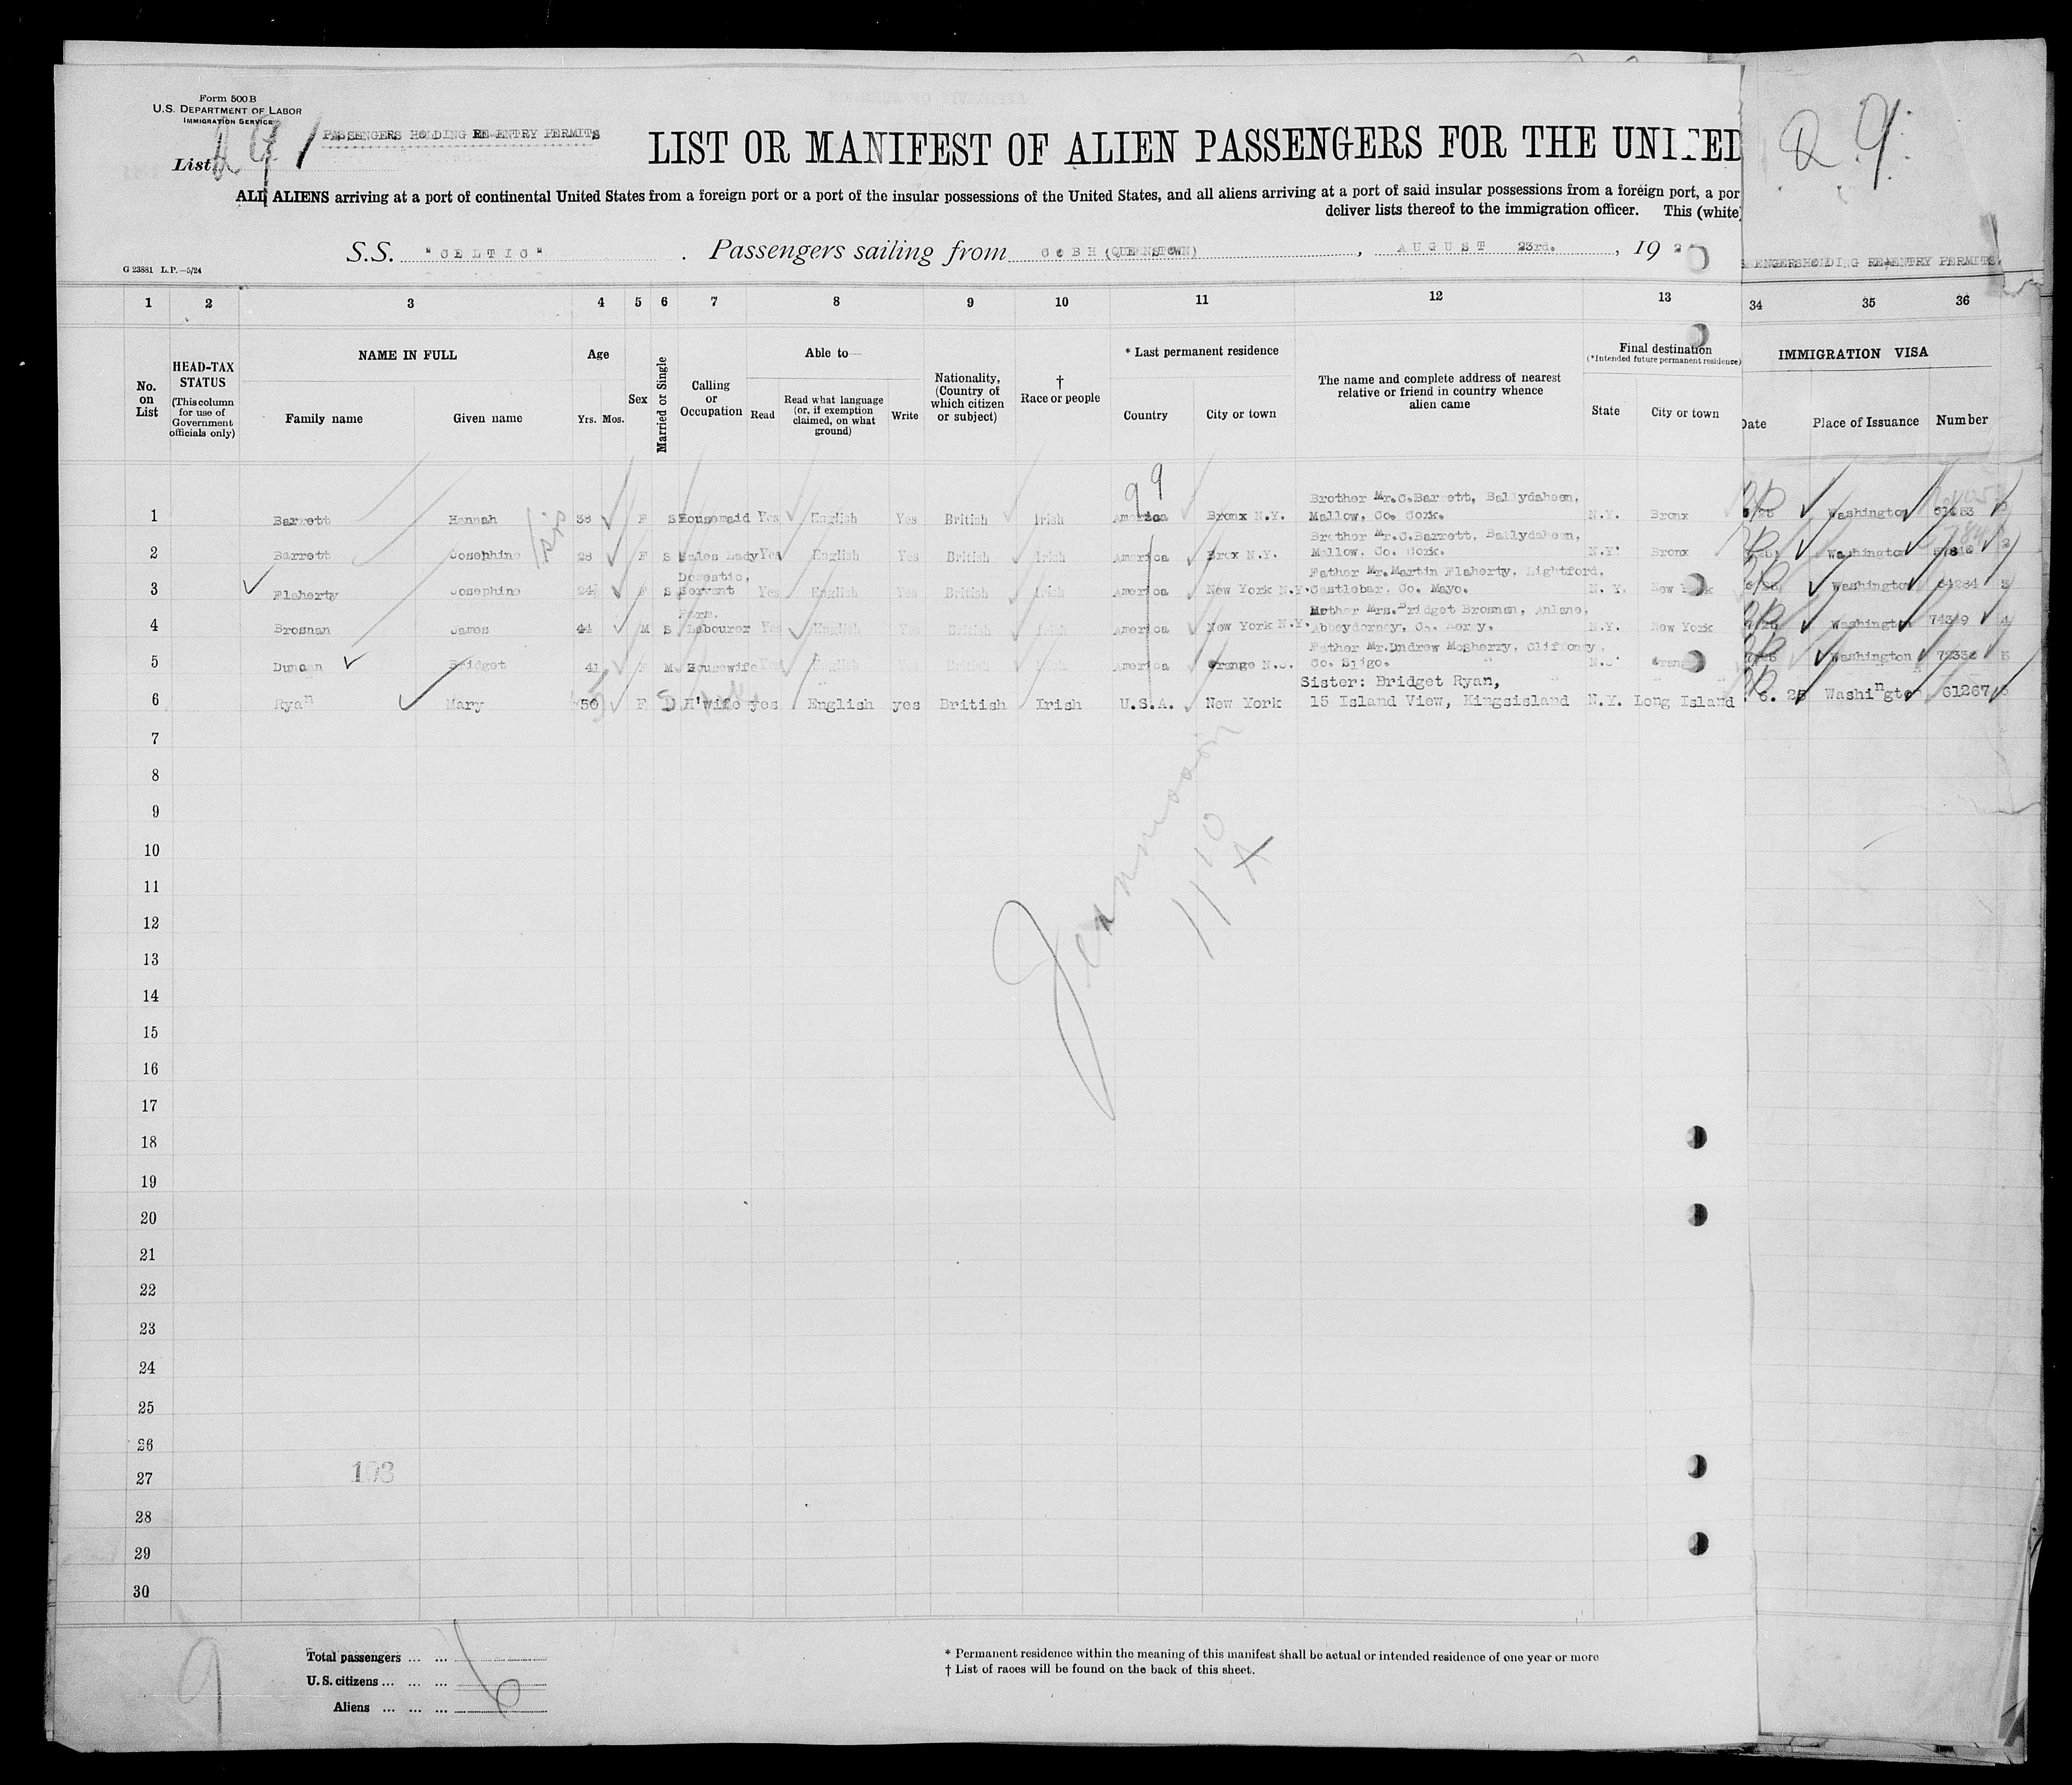 Form 500 B
U.S. DEPARTMENT OF LABOR
IMMIGRATION SERVICE
PASSENGERS HOLDING RE-ENTRY PERMITS
List
LIST OR MANIFEST OF ALIEN PASSENGERS FOR THE UNITED
ALL ALIENS arriving at a port of continental United States from a foreign port or a port of the insular possessions of the United States, and all aliens arriving at a port of said insular possessions from a foreign port, a por
deliver lists thereof to the immigration officer. This (white
S.S. "CELTIC". Passengers sailing from COBH (QUEENSTOWN), AUGUST 23rd., 19 2
G 23881 L.P.—5/24
ENGERS HOLDING RE-ENTRY PERMITS.
1 2 3 4 5 6 7 8 9 10 11 12 13 34 35 36
No. on List
HEAD-TAX STATUS
(This column for use of Government officials only)
NAME IN FULL
Family name Given name
Age
Yrs. Mos.
Sex
Married or Single
Calling or Occupation
Able to—
Read
Read what language (or, if exemption claimed, on what ground)
Write
Nationality, (Country of which citizen or subject)
† Race or people
* Last permanent residence
Country City or town
The name and complete address of nearest relative or friend in country whence alien came
Final destination
(*Intended future permanent residence)
State City or town
IMMIGRATION VISA
Date Place of Issuance Number
Brother Mr. C. Barrett, Ballydaheen,
1 Barrett Hannah 38 F S Housemaid Yes English Yes British Irish America Bronx N.Y. Mallow, Co. Cork. N.Y. Bronx Washington 1
Brother Mr. C. Barrett, Ballydaheen,
2 Barrett Josephine 28 F S Sales Lady Yes English Yes British Irish America Brox N.Y. Mallow, Co. Cork. N.Y. Bronx Washington 2
Domestic, Father Mr. Martin Flaherty, Lightford,
3 Flaherty Josephine 24 F S Servant Yes English Yes British Irish America New York N.Y. Castlebar, Co. Mayo. N. Y. New York Washington 64284 3
Farm. Mother Mrs. Bridget Brosnan,
4 Brosnan James 44 M S Labourer Yes English Yes British Irish America New York N.Y. Abbeydorney, Co. Kerry. N.Y. New York Washington 74349 4
Father Mr. Dndrew McSherry, Cliffoney,
5 Duncan Bridget 41 F M Housewife Yes English Yes British Irish America Orange N.J. Co. Sligo. N.J. Orange Washington 5
Sister: Bridget Ryan,
6 Ryan Mary 50 F H'wife yes English yes British Irish U.S.A. New York 15 Island View, Kingsisland N.Y. Long Island 6. 25 Washington 61267 6
7
8
9
10
11
12
13
14
15
16
17
18
19
20
21
22
23
24
25
26
27
103
28
29
30
9
Total passengers ... ...
U.S. citizens ... ... ...
Aliens ... ... ...
6
* Permanent residence within the meaning of this manifest shall be actual or intended residence of one year or more
† List of races will be found on the back of this sheet.